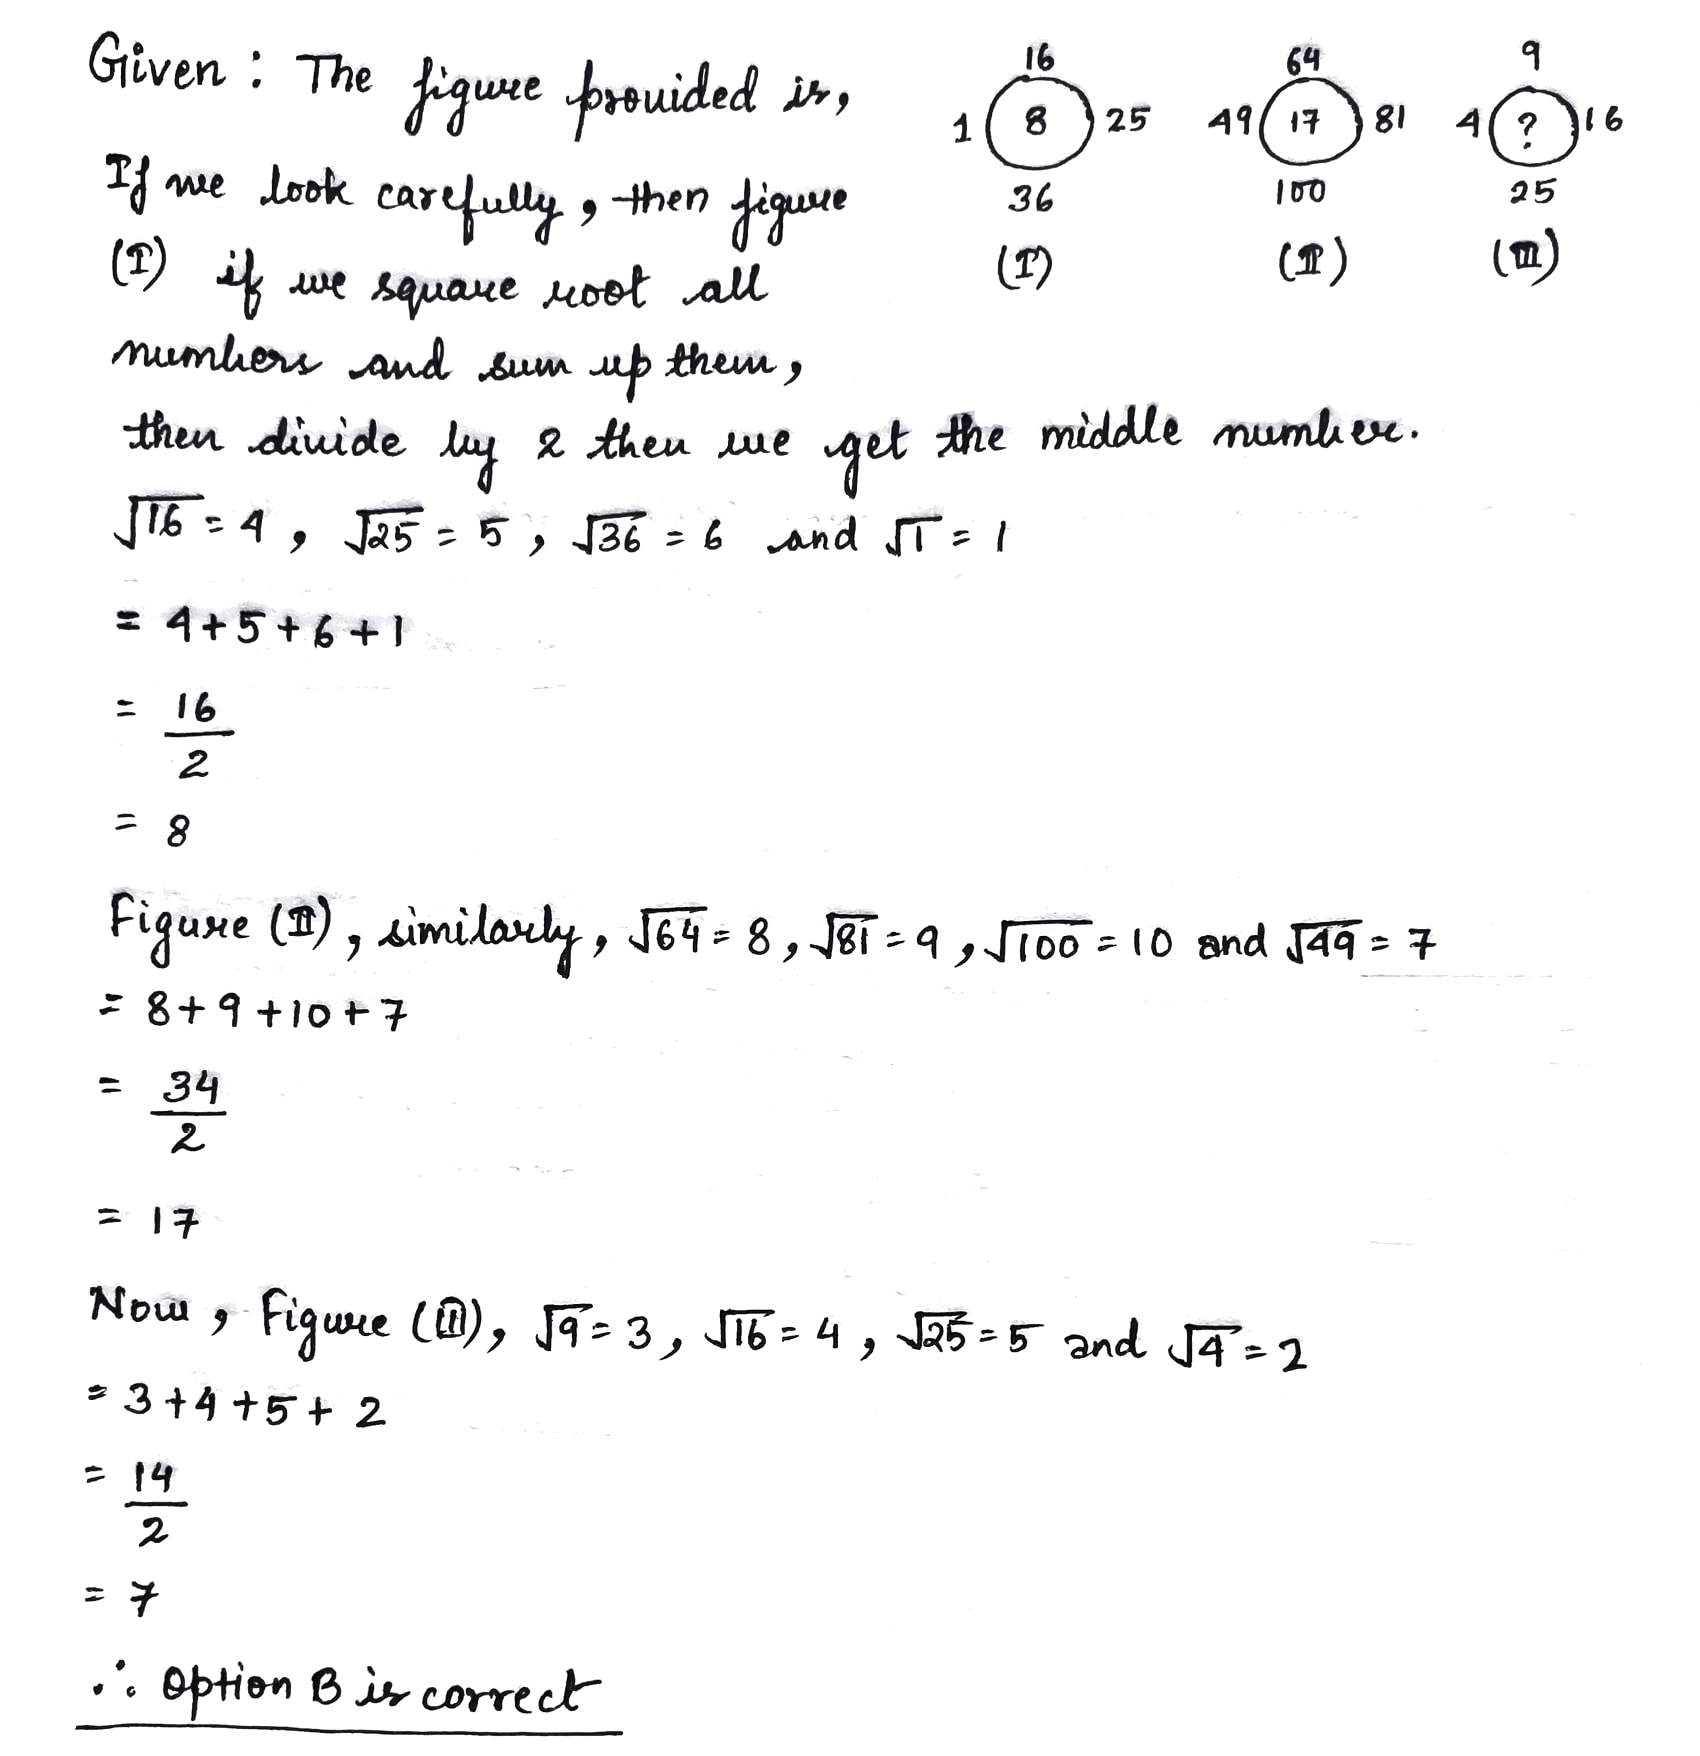 Given : The figure provided is,
16
1 8 25
36
(I)
64
49 17 81
100
(II)
9
4 ? 16
25
(III)
If we look carefully, then figure
(I) if we square root all
numbers and sum up them,
then divide by 2 then we get the middle number.
√16 = 4, √25 = 5, √36 = 6 and √1 = 1
= 4+5+6+1
= 16/2
= 8
Figure (II), similarly, √64 = 8, √81 = 9, √100 = 10 and √49 = 7
= 8+9+10+7
= 34/2
= 17
Now, Figure (III), √9 = 3, √16 = 4, √25 = 5 and √4 = 2
= 3+4+5+2
= 14/2
= 7
∴ Option B is correct